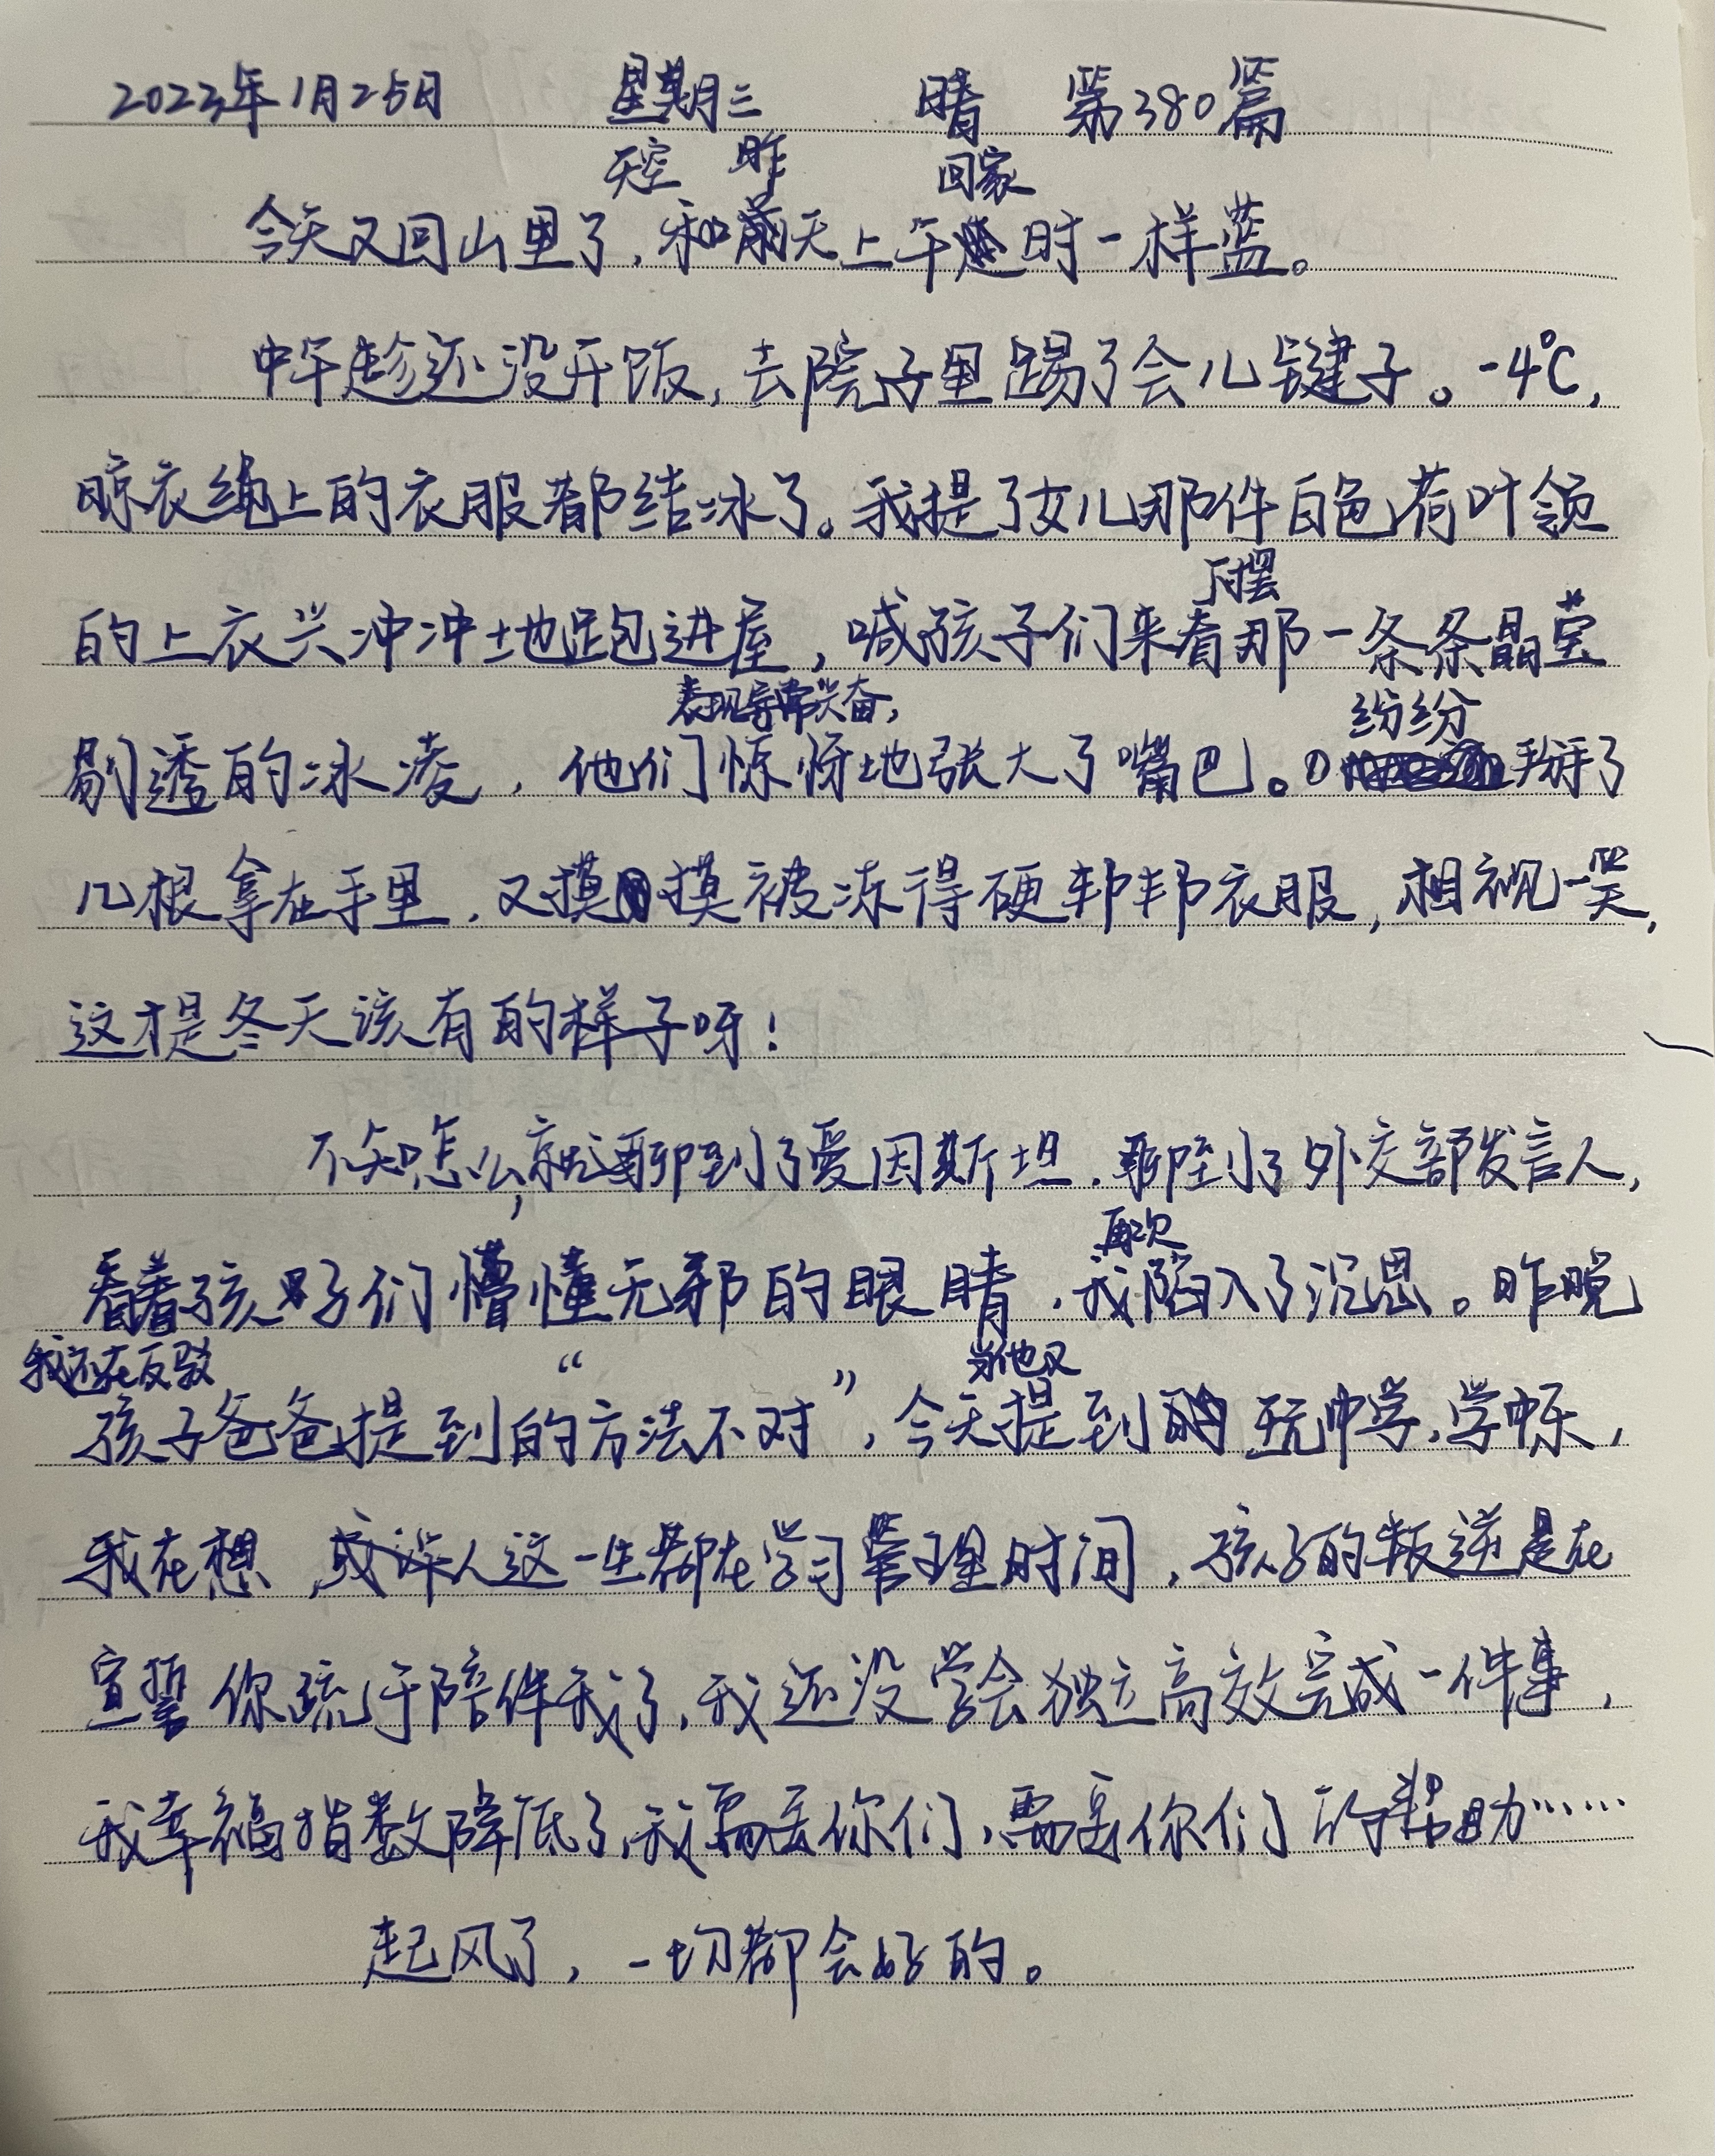 2023年1月25日 星期三 晴 第380篇
天空 昨 回家
今天又回山里了，和天上午时一样蓝。
中午趁还没开饭，去院子里踢了会儿毽子。-4℃，
晾衣绳上的衣服都结冰了。我提了女儿那件白色荷叶领
下摆
的上衣兴冲冲地跑进屋，喊孩子们来看那一条条晶莹
表现异常兴奋， 纷纷
剔透的冰凌，他们惊讶地张大了嘴巴。掰了
几根拿在手里，又摸摸被冻得硬邦邦衣服，相视一笑，
这才是冬天该有的样子呀！
不知怎么，就聊到了爱因斯坦，聊到了外交部发言人，
再次
看着孩子们懵懂无邪的眼睛，我陷入了沉思。昨晚
我还在反驳 “ ” 当他又
孩子爸爸提到的方法不对，今天提到玩中学，学中乐，
我在想，或许人这一生都在学习管理时间，孩子的叛逆是在
宣誓你疏于陪伴我了，我还没学会独立高效完成一件事，
我幸福指数降低了，我需要你们，需要你们的帮助……
起风了，一切都会好的。